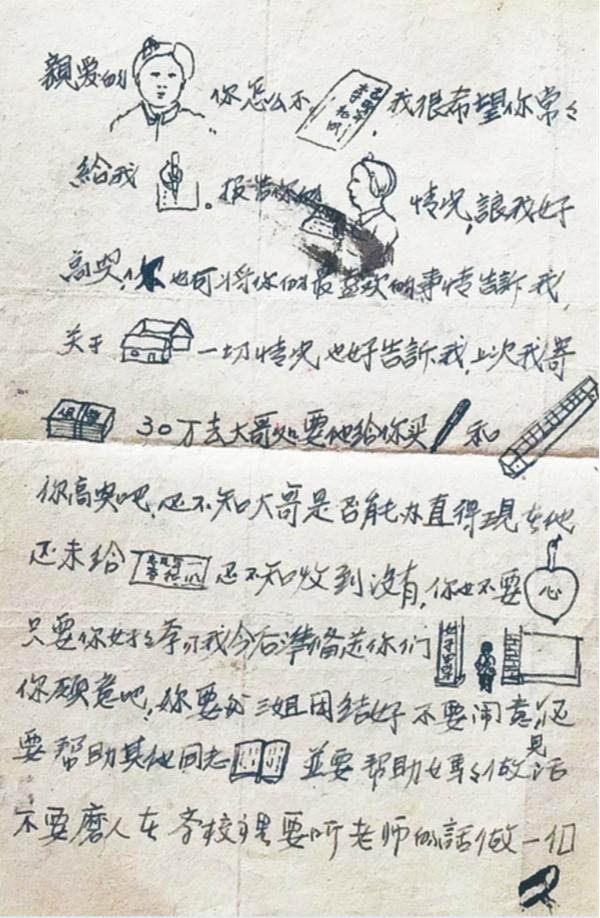 親爱的 你怎么不 我很希望你常々
給我 。报告你的 情况,讓我好
高兴,你也可将你们最喜欢的事情告訴我,
关于 一切情况也好告訴我,上次我寄
30万去大哥处要他给你买 和
你高兴吧,还不知大哥是否能办直得現在他
还未给 还不知收到没有,你也不要 心
只要你好好学习我今后準备送你们
你願意吧,你要分三姐团结好不要闹意見还
要帮助其他同志 並要帮助妈妈做活
不要磨人在学校里要听老师的話做一個